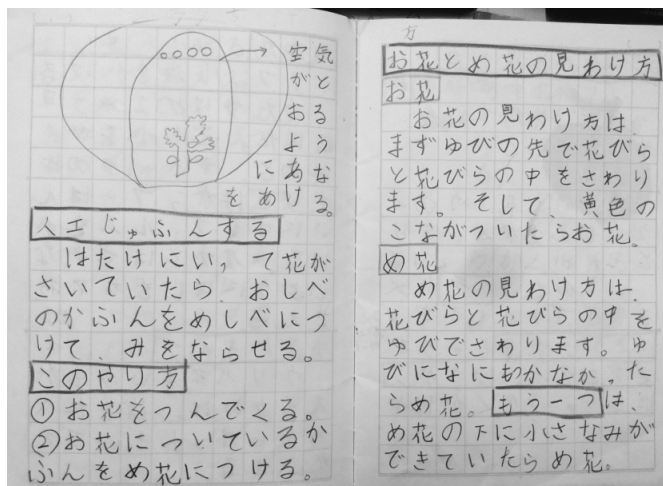 空気
がと
おる
よう
にあな
をあける。
人工じゅふんする
はたけにいって花が
さいていたら、おしべ
のかふんをめしべにつ
けて、みをならせる。
このやり方
①お花をつんでくる。
②お花についているか
ふんをめ花につける。
方
お花とめ花の見わけ方
お花
お花の見わけ方は、
まずゆびの先で花びら
と花びらの中をさわり
ます。そして、黄色の
こながついたらお花。
め花
め花の見わけ方は、
花びらと花びらの中を
ゆびでさわります。ゆ
びになにもかなかった
らめ花。もう一つは、
め花の下に小さなみが
できていたらめ花。